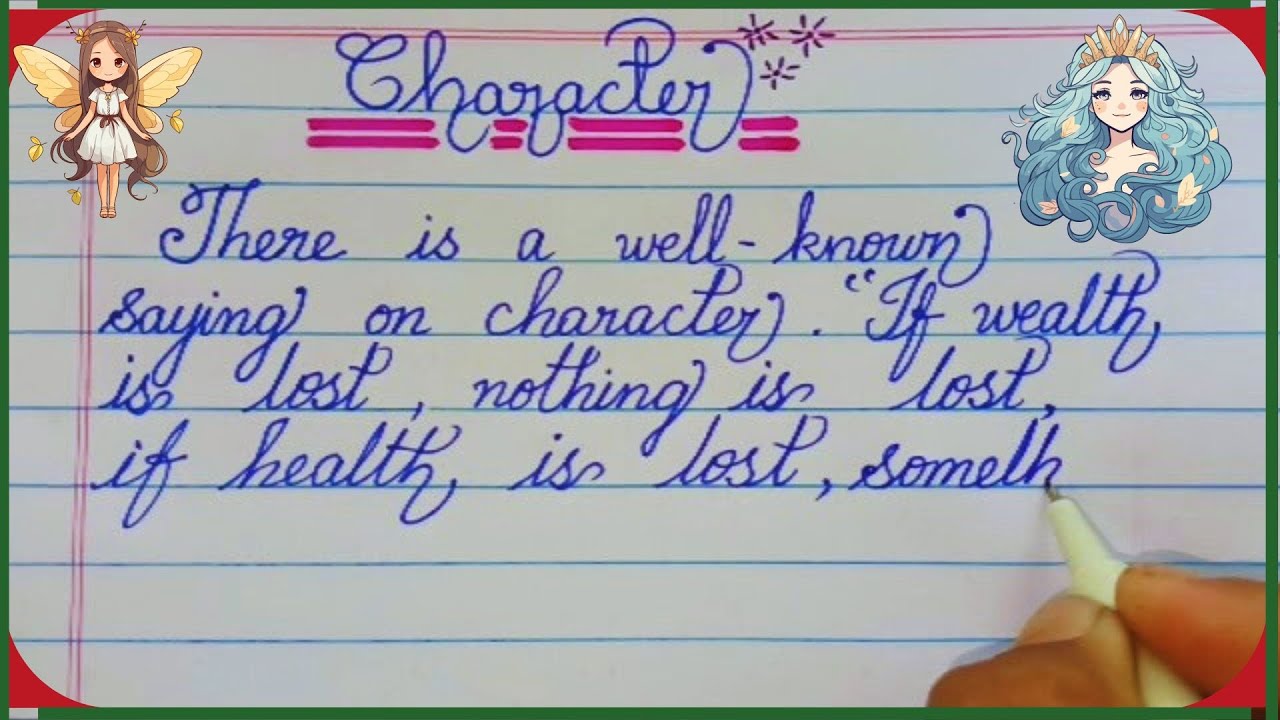 Character
There is a well-known
saying on character. "If wealth
is lost, nothing is lost,
if health is lost, someth